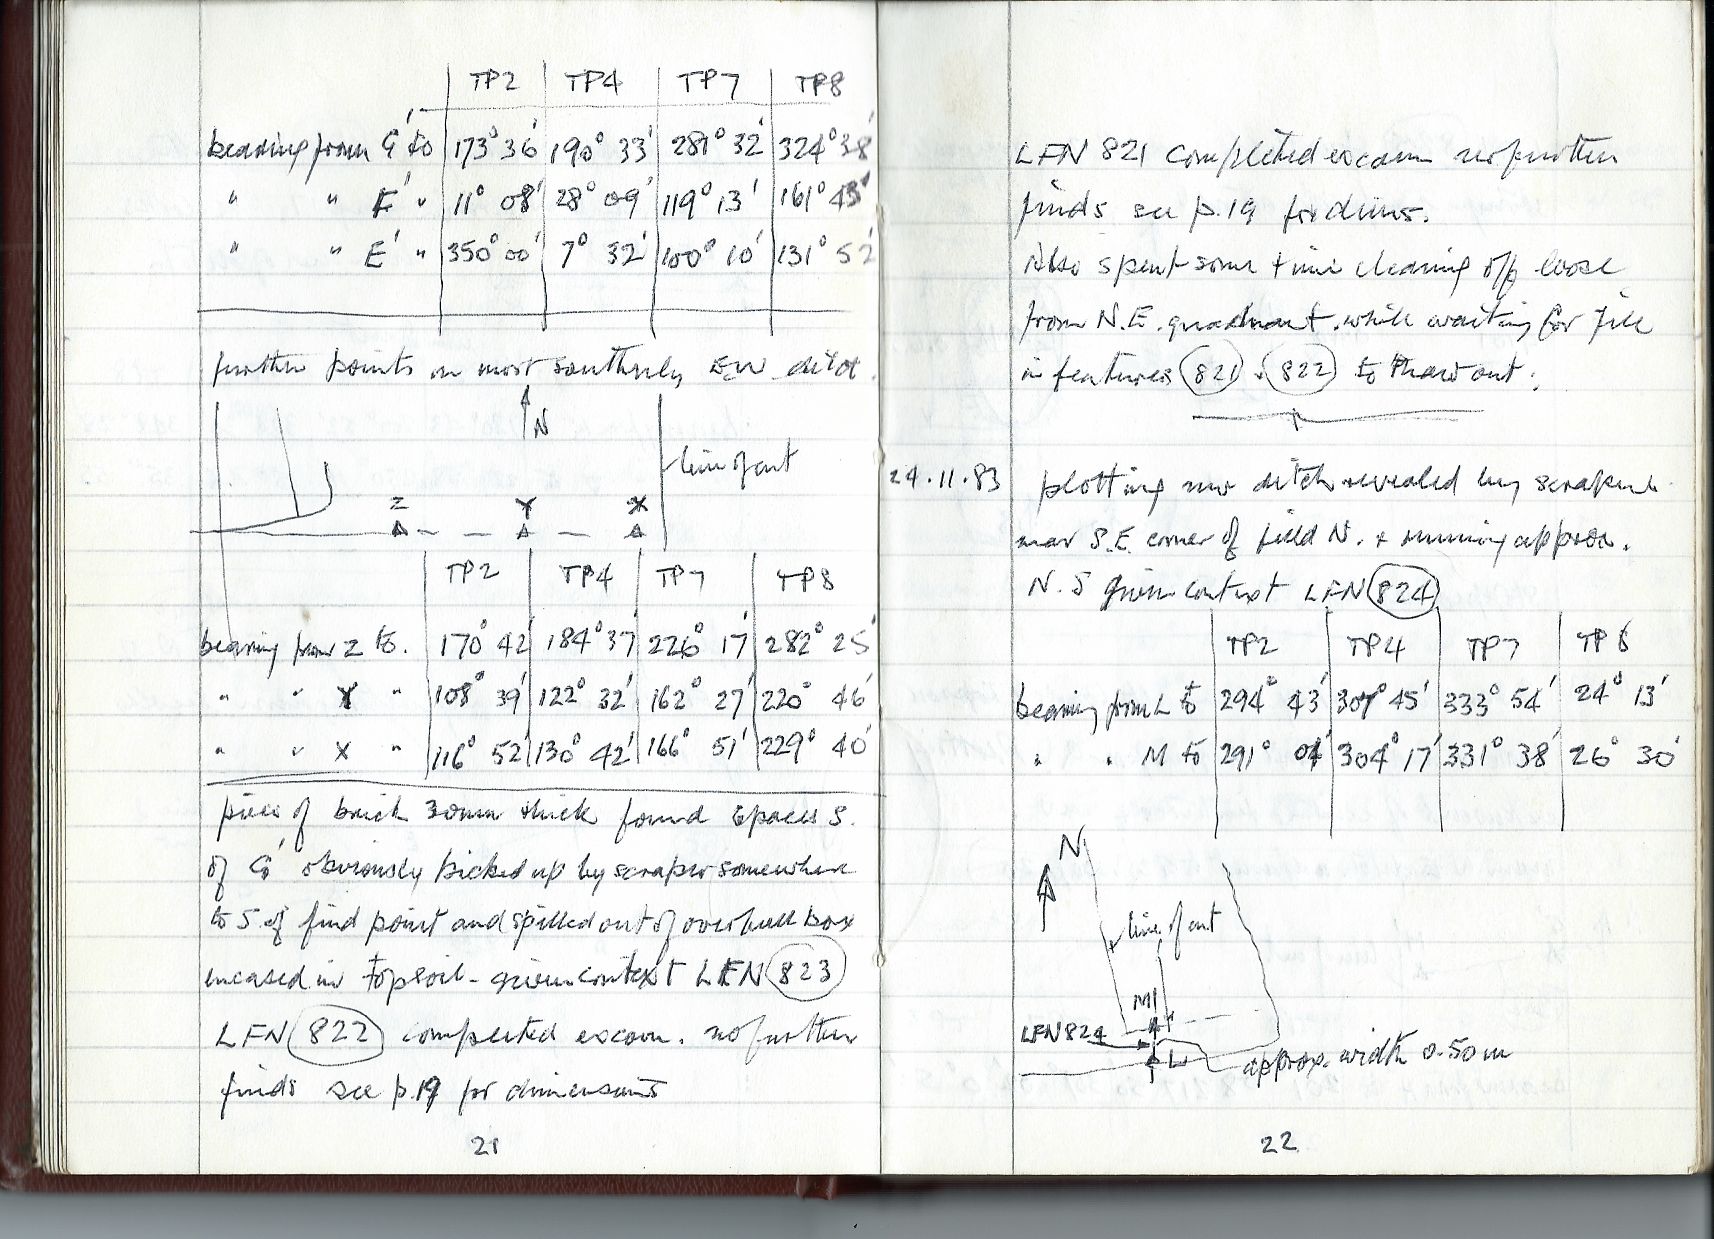 TP2 TP4 TP7 TP8
bearing from G' to 173° 36' 190° 33' 281° 32' 324° 38'
" " F' " 11° 08' 28° 09' 119° 13' 161° 43'
" " E' " 350° 00' 7° 32' 100° 10' 131° 52'
further points on most southerly EW ditch.
N
line of cut
Z Y X
TP2 TP4 TP7 TP8
bearing from Z to. 170° 42' 184° 37' 226° 17' 282° 25'
" " Y " 108° 39' 122° 32' 162° 27' 220° 46'
" " X " 116° 52' 130° 42' 166° 51' 229° 40'
piece of brick 30mm thick found 6 paces S.
of G' obviously picked up by scraper somewhere
to S of find point and spilled out of overfull box
encased in topsoil - given context LFN 823
LFN 822 completed excavn. no further
finds see p.19 for dimensions
21
LFN 821 completed excavn no further
finds see p.19 for dims.
Also spent some time cleaning off loose
from N.E. quadrant. while waiting for fill
in features 821 & 822 to thaw out.
24.11.83 plotting new ditch revealed by scraper
near S.E. corner of field N. & running approx.
N.S given context LFN 824
TP2 TP4 TP7 TP8
bearing from L to 294° 43' 307° 45' 333° 54' 24° 13'
" " M to 291° 04' 304° 17' 331° 38' 26° 30'
N
line of cut
M
LFN 824
L
approx. width 0.50m
22